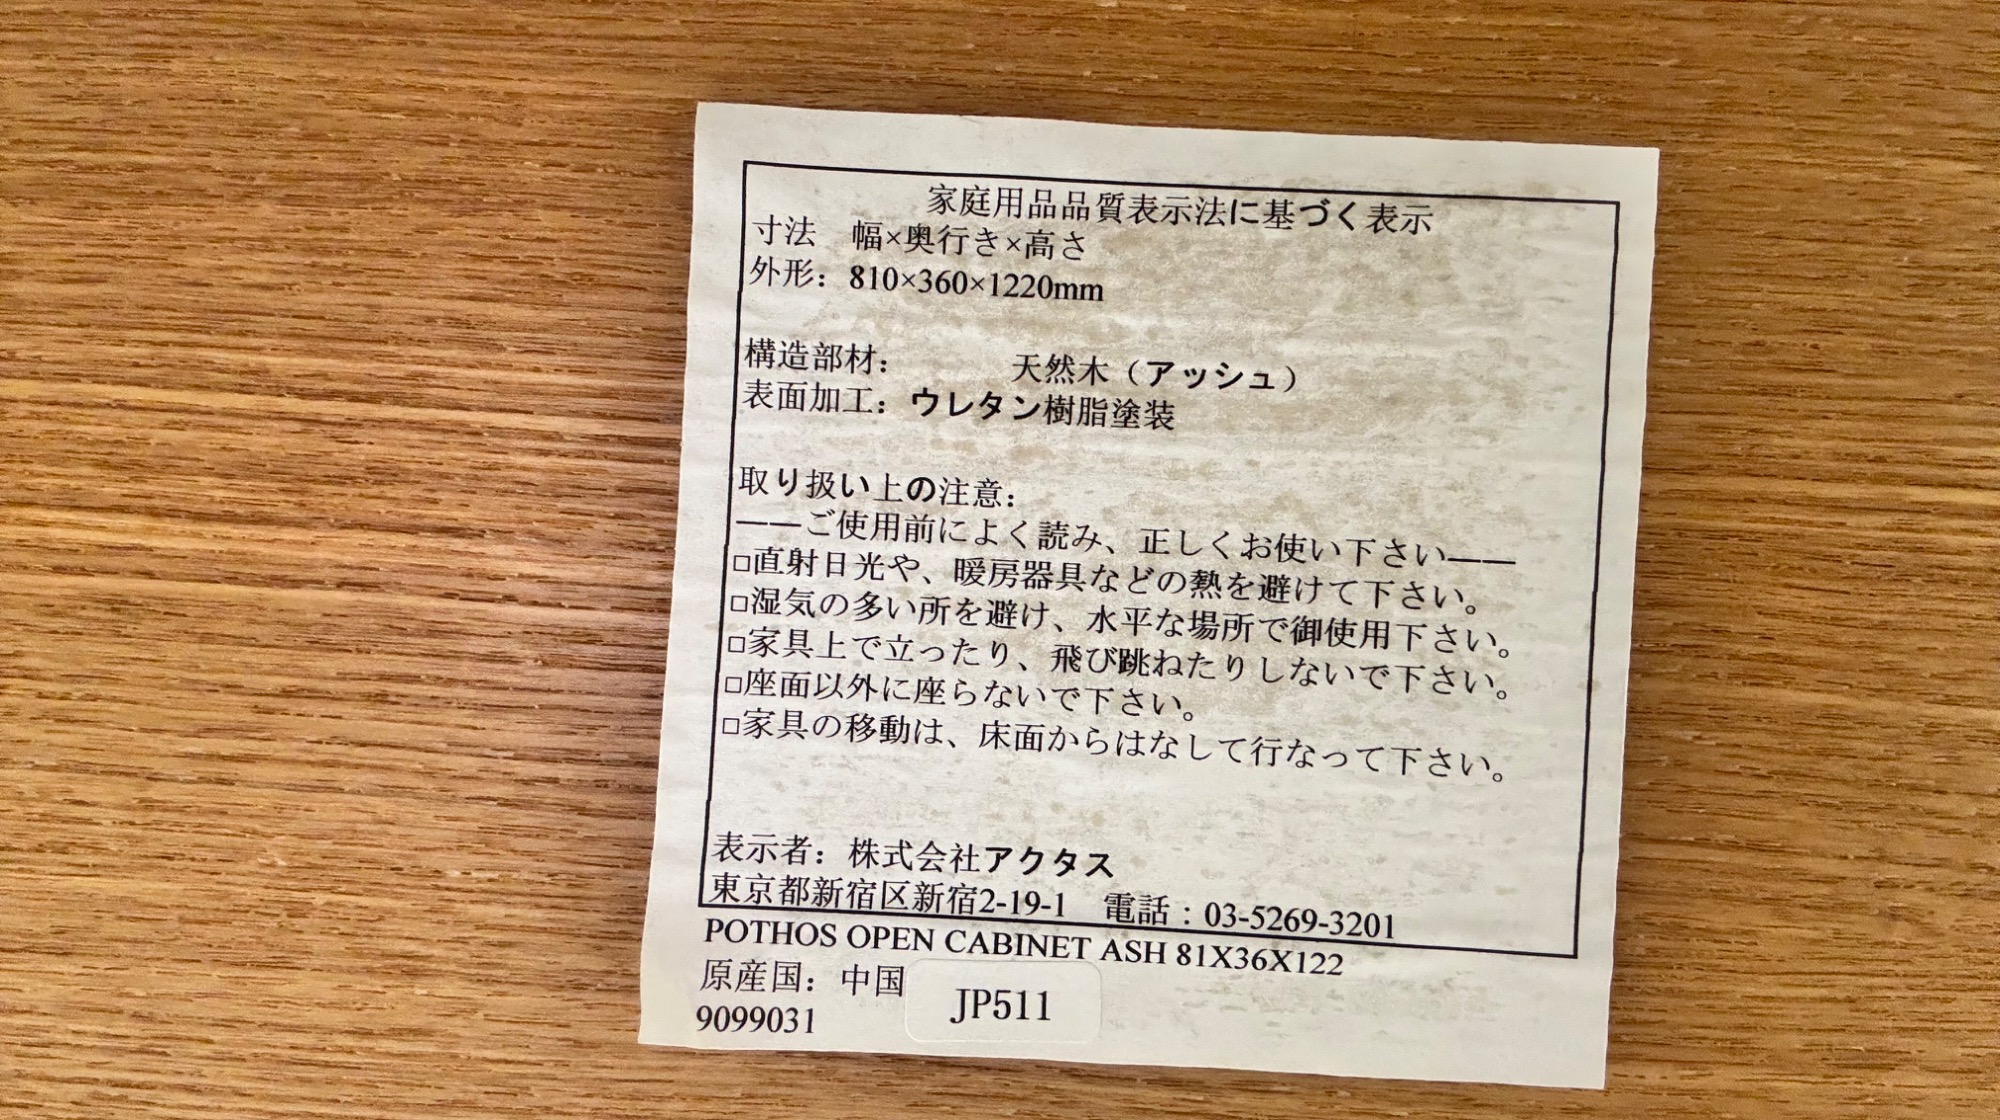 家庭用品品質表示法に基づく表示
寸法　幅×奥行き×高さ
外形：810×360×1220mm
構造部材：　　　天然木（アッシュ）
表面加工：ウレタン樹脂塗装
取り扱い上の注意：
――ご使用前によく読み、正しくお使い下さい――
□直射日光や、暖房器具などの熱を避けて下さい。
□湿気の多い所を避け、水平な場所で御使用下さい。
□家具上で立ったり、飛び跳ねたりしないで下さい。
□座面以外に座らないで下さい。
□家具の移動は、床面からはなして行なって下さい。
表示者：株式会社アクタス
東京都新宿区新宿2-19-1　電話：03-5269-3201
POTHOS OPEN CABINET ASH 81X36X122
原産国：中国
JP511
9099031